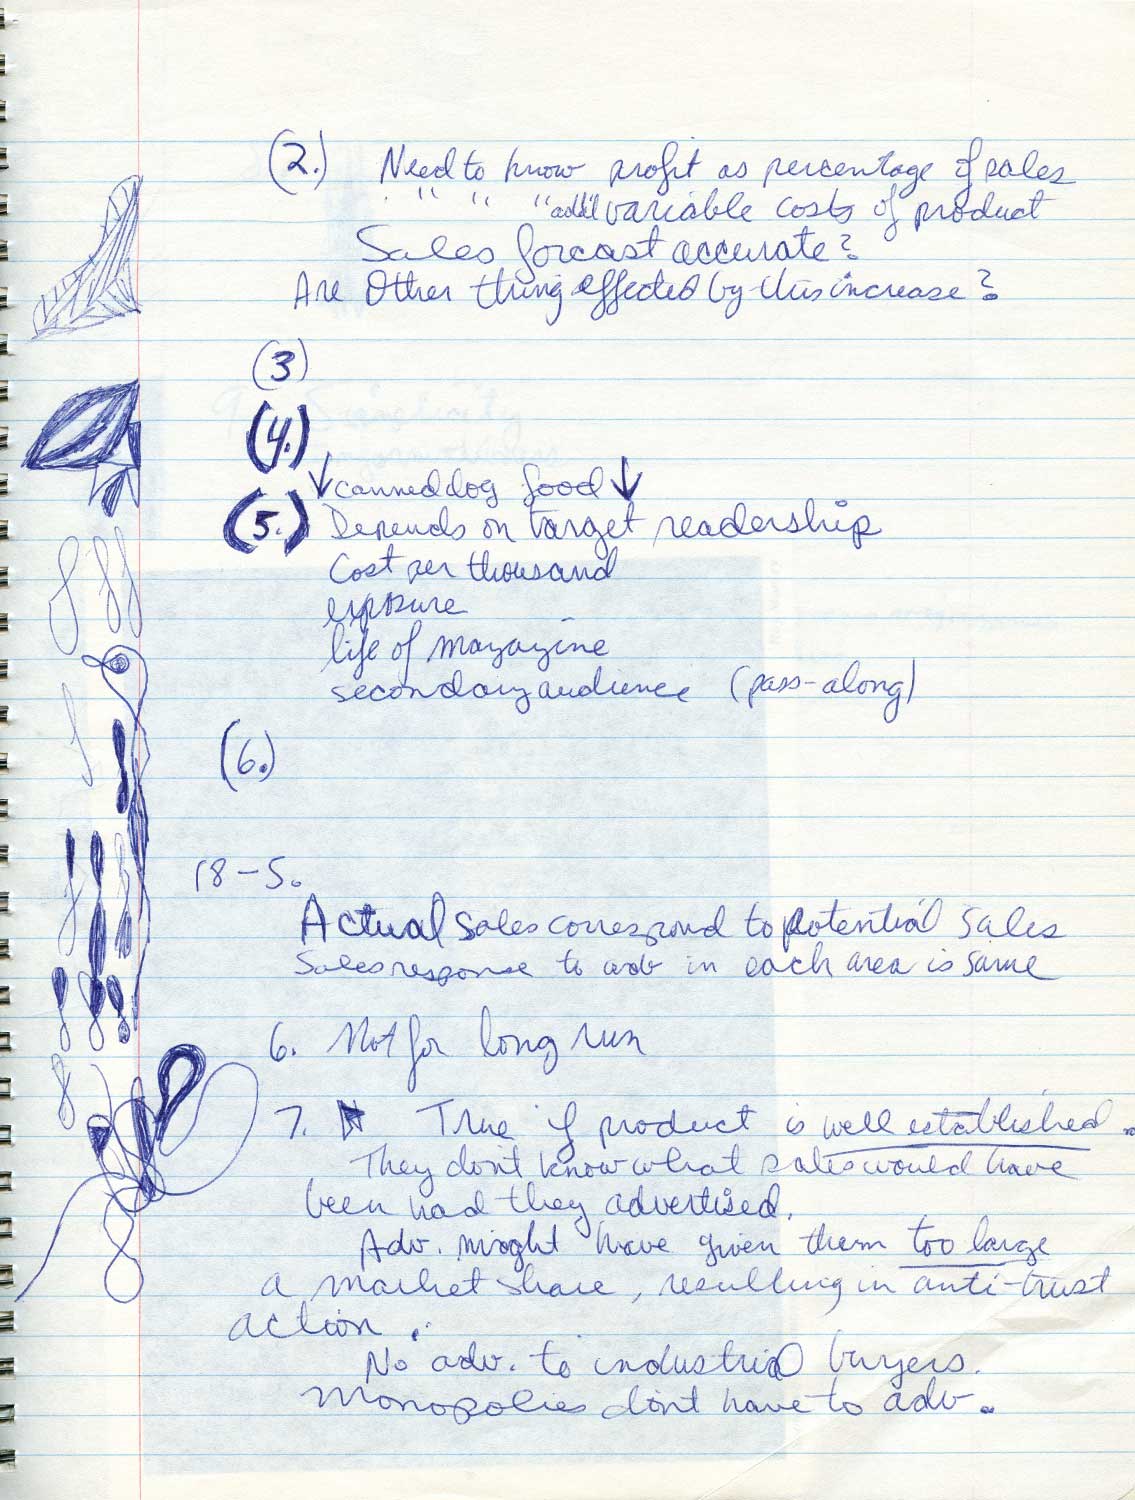 (2.) Need to know profit as percentage of sales
" " " add'l variable costs of product
Sales forcast accurate?
Are Other thing effected by this increase?
(3)
(4.)
↓ canned dog food ↓
(5.) Depends on target readership
Cost per thousand
exposure
life of magazine
secondary audience (pass-along)
(6.)
18-5.
Actual sales correspond to potential sales
Sales response to adv in each area is same
6. Not for long run
7. True if product is well established.
They don't know what sales would have
been had they advertised.
Adv. might have given them too large
a market share, resulting in anti-trust
action.
No adv. to industrial buyers.
Monopolies don't have to adv.